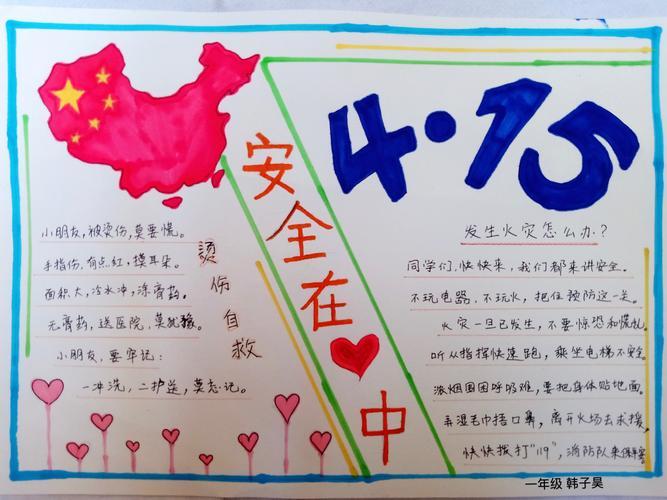 4·15
安全在中
烫伤自救
小朋友,被烫伤,莫要慌。
手指伤,有点红,摸耳朵。
面积大,冷水冲,涂膏药。
无膏药,送医院,莫犹豫。
小朋友,要牢记:
一冲洗,二护送,莫忘记。
发生火灾怎么办?
同学们,快快来,我们都来讲安全。
不玩电器,不玩火,把住预防这一关。
火灾一旦已发生,不要惊恐和慌乱。
听从指挥快速跑,乘坐电梯不安全。
浓烟围困呼吸难,要把身体贴地面。
弄湿毛巾捂口鼻,离开火场去求援。
快快拨打"119",消防队来
一年级 韩子昊